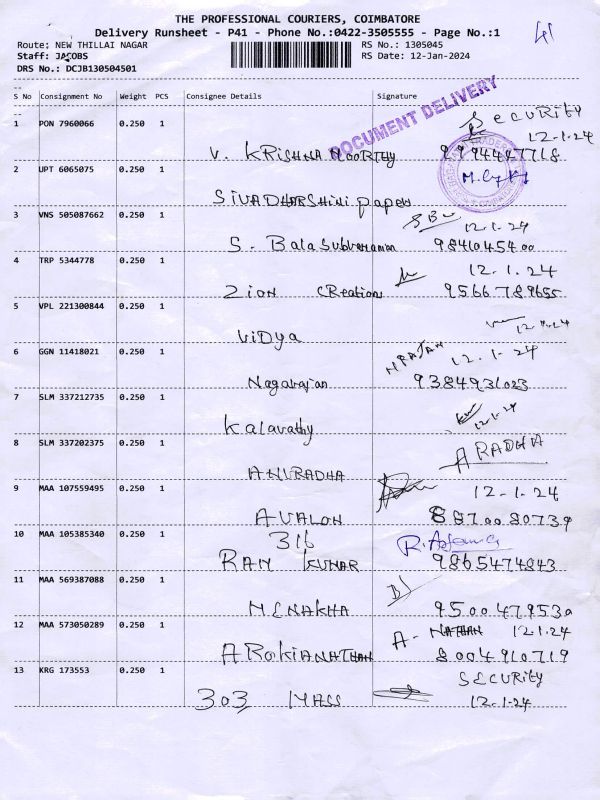 THE PROFESSIONAL COURIERS, COIMBATORE
Delivery Runsheet - P41 - Phone No.:0422-3505555 - Page No.:1
Route: NEW THILLAI NAGAR RS No.: 1305045
Staff: JACOBS RS Date: 12-Jan-2024
DRS No.: DCJB130504501
S No Consignment No Weight PCS Consignee Details Signature
DOCUMENT DELIVERY
1 PON 7960066 0.250 1 SECURITY
12-1-24
V. KRISHNA MOORTHY 9994447718
2 UPT 6065075 0.250 1
SIVADHARSHINI papers
3 VNS 505087662 0.250 1 SBU 12-1-24
S. Bala Subramanian 9841045400
4 TRP 5344778 0.250 1 12.1.24
Zion CReations 9566789655
5 VPL 221300844 0.250 1 12-1-24
ViDya
6 GGN 11418021 0.250 1 12-1-24
Nagarajan 9384931023
7 SLM 337212735 0.250 1 12-1-24
Kalavathy
8 SLM 337202375 0.250 1 ARADHA
ANURADHA
9 MAA 107559495 0.250 1 12-1-24
AVALON 8870080739
10 MAA 105385340 0.250 1 316
RAM KUMAR 9865474843
11 MAA 569387088 0.250 1
MENAKHA 9500479530
12 MAA 573050289 0.250 1 A- NATHAN 12.1.24
AROKIANATHAN 8004910719
13 KRG 173553 0.250 1 SECURITY
303 MASS 12-1-24